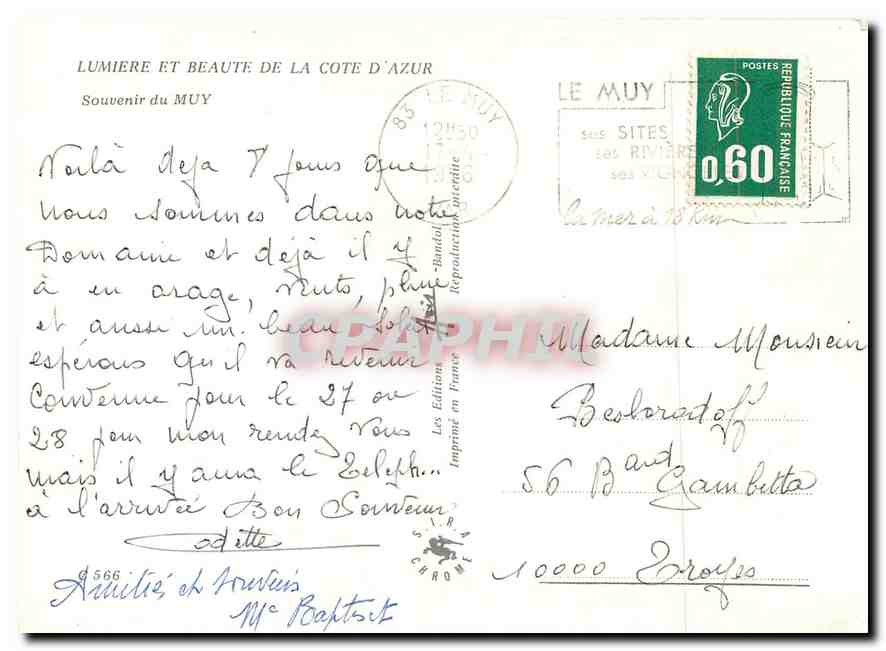 LUMIERE ET BEAUTE DE LA COTE D'AZUR
Souvenir du MUY
Voilà deja 8 jours que
nous sommes dans notre
Domaine et déjà il y
à eu orage, vents, pluie
et aussi un beau soleil
espérons qu'il va revenir
Convenue pour le 27 ou
28 pour mon rendez vous
mais il y aura le Teleph...
à l'arrivée Bon Souvenir
Odette
566
Amitiés et souvenirs
Mc Baptist
Les Editions Bandol
Imprimé en France Reproduction interdite
S.I.R.A.
CHROME
CPAPHIL
83 LE MUY
12H30
LE MUY
ses SITES
ses RIVIÈRE
ses VIGNO
la mer à 18 km
POSTES
REPUBLIQUE FRANÇAISE
0,60
Madame Monsieur
Besborodoff
56 Bard Gambetta
10000 Troyes